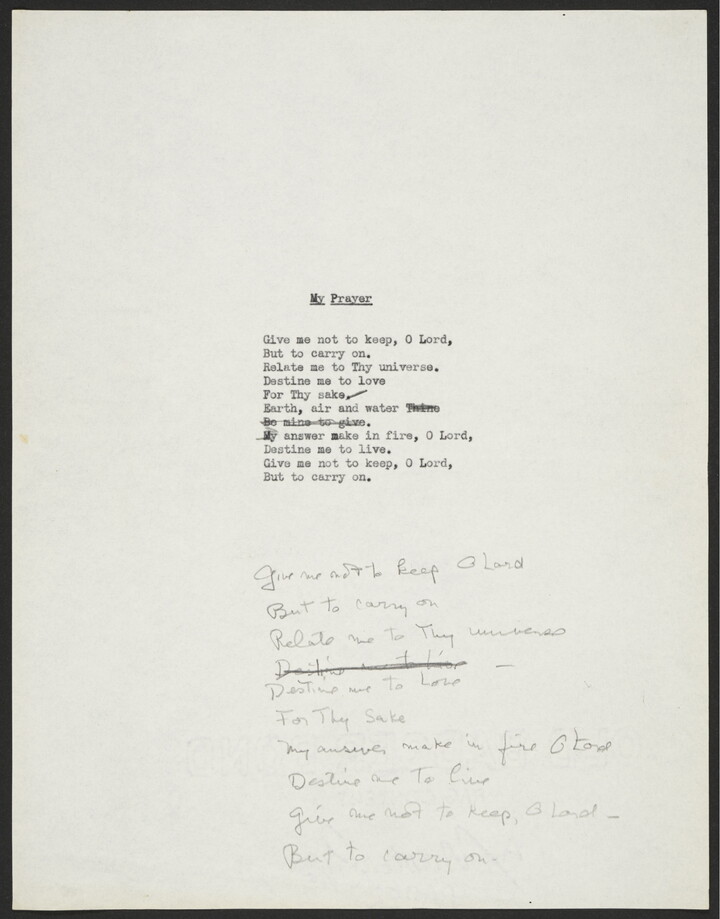 My Prayer
Give me not to keep, O Lord,
But to carry on.
Relate me to Thy universe.
Destine me to love
For Thy sake.
Earth, air and water Thine
Be mine to give.
My answer make in fire, O Lord,
Destine me to live.
Give me not to keep, O Lord,
But to carry on.
Give me not to keep O Lord
But to carry on
Relate me to Thy universe
Destine me to live —
Destine me to Love
For Thy Sake
My answer make in fire O Lord
Destine me To live
Give me not to keep, O Lord —
But to carry on.